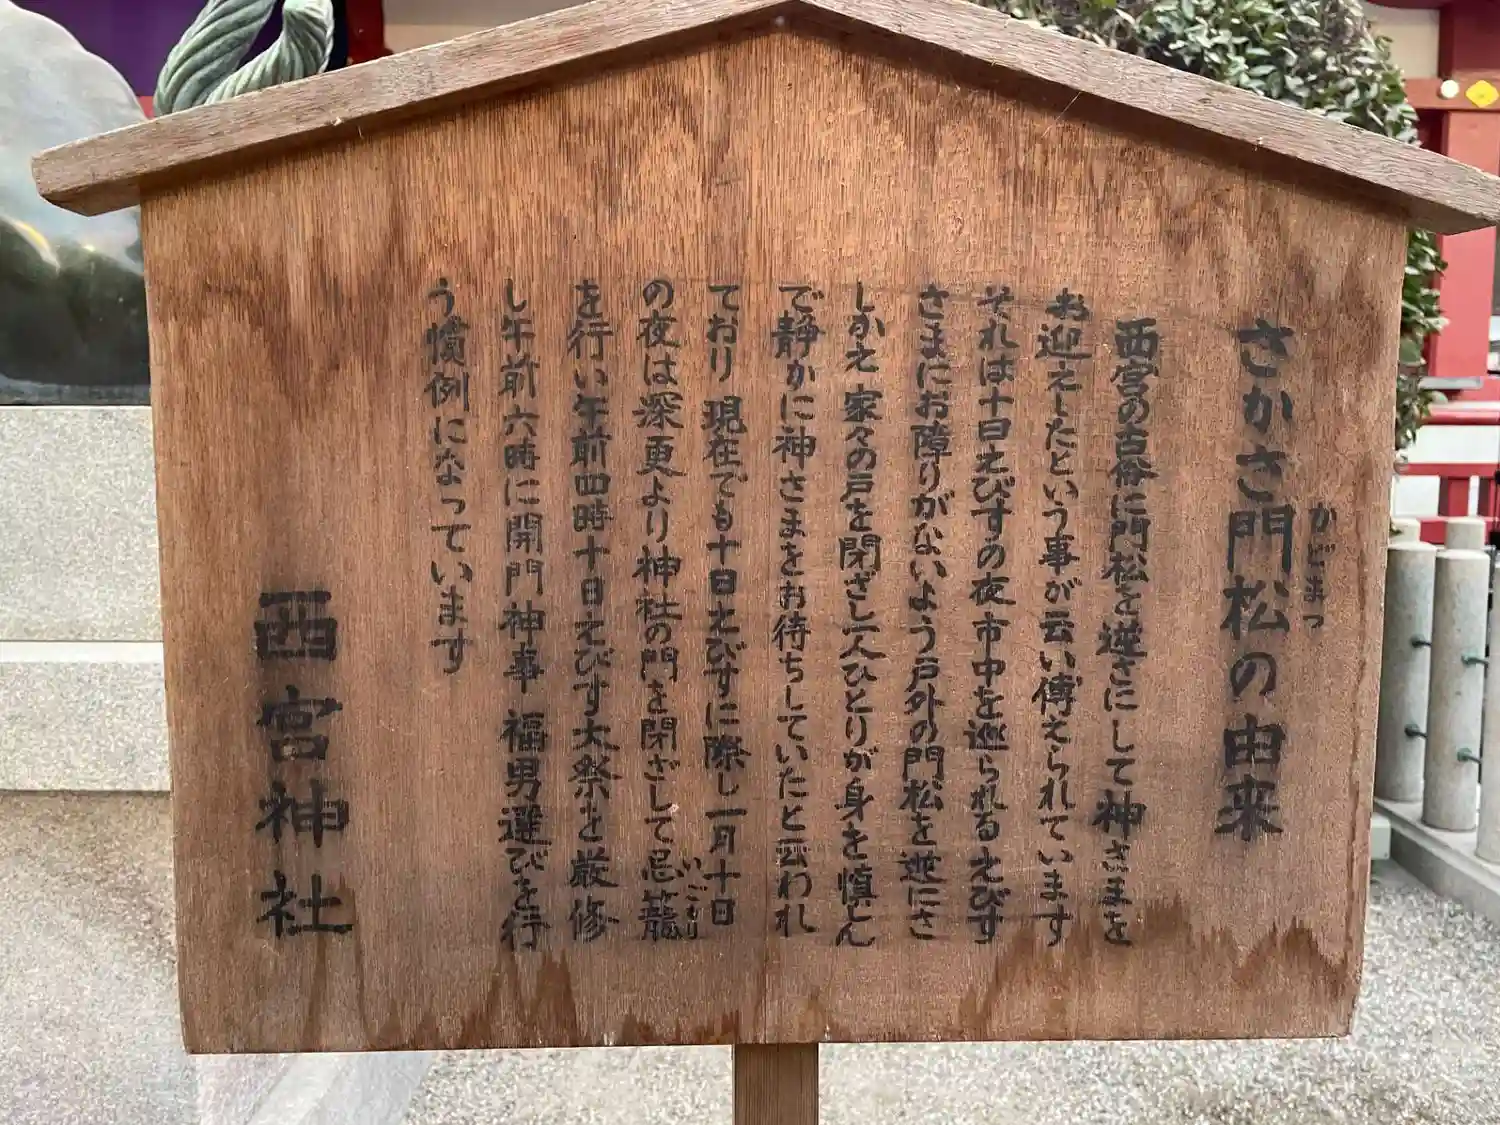 さかさ門松の由来
かどまつ
西宮の古俗に門松を逆さにして神さまを
お迎えしたという事が云い傳えられています
それは十日えびすの夜市中を巡られるえびす
さまにお障りがないよう戸外の門松を逆にさ
しかえ家々の戸を閉ざし一人ひとりが身を慎しん
で静かに神さまをお待ちしていたと云われ
ており現在でも十日えびすに際し一月十日
の夜は深更より神社の門を閉ざして忌籠
いごもり
を行い午前四時十日えびす大祭を厳修
し午前六時に開門神事 福男選びを行
う慣例になっています
西宮神社